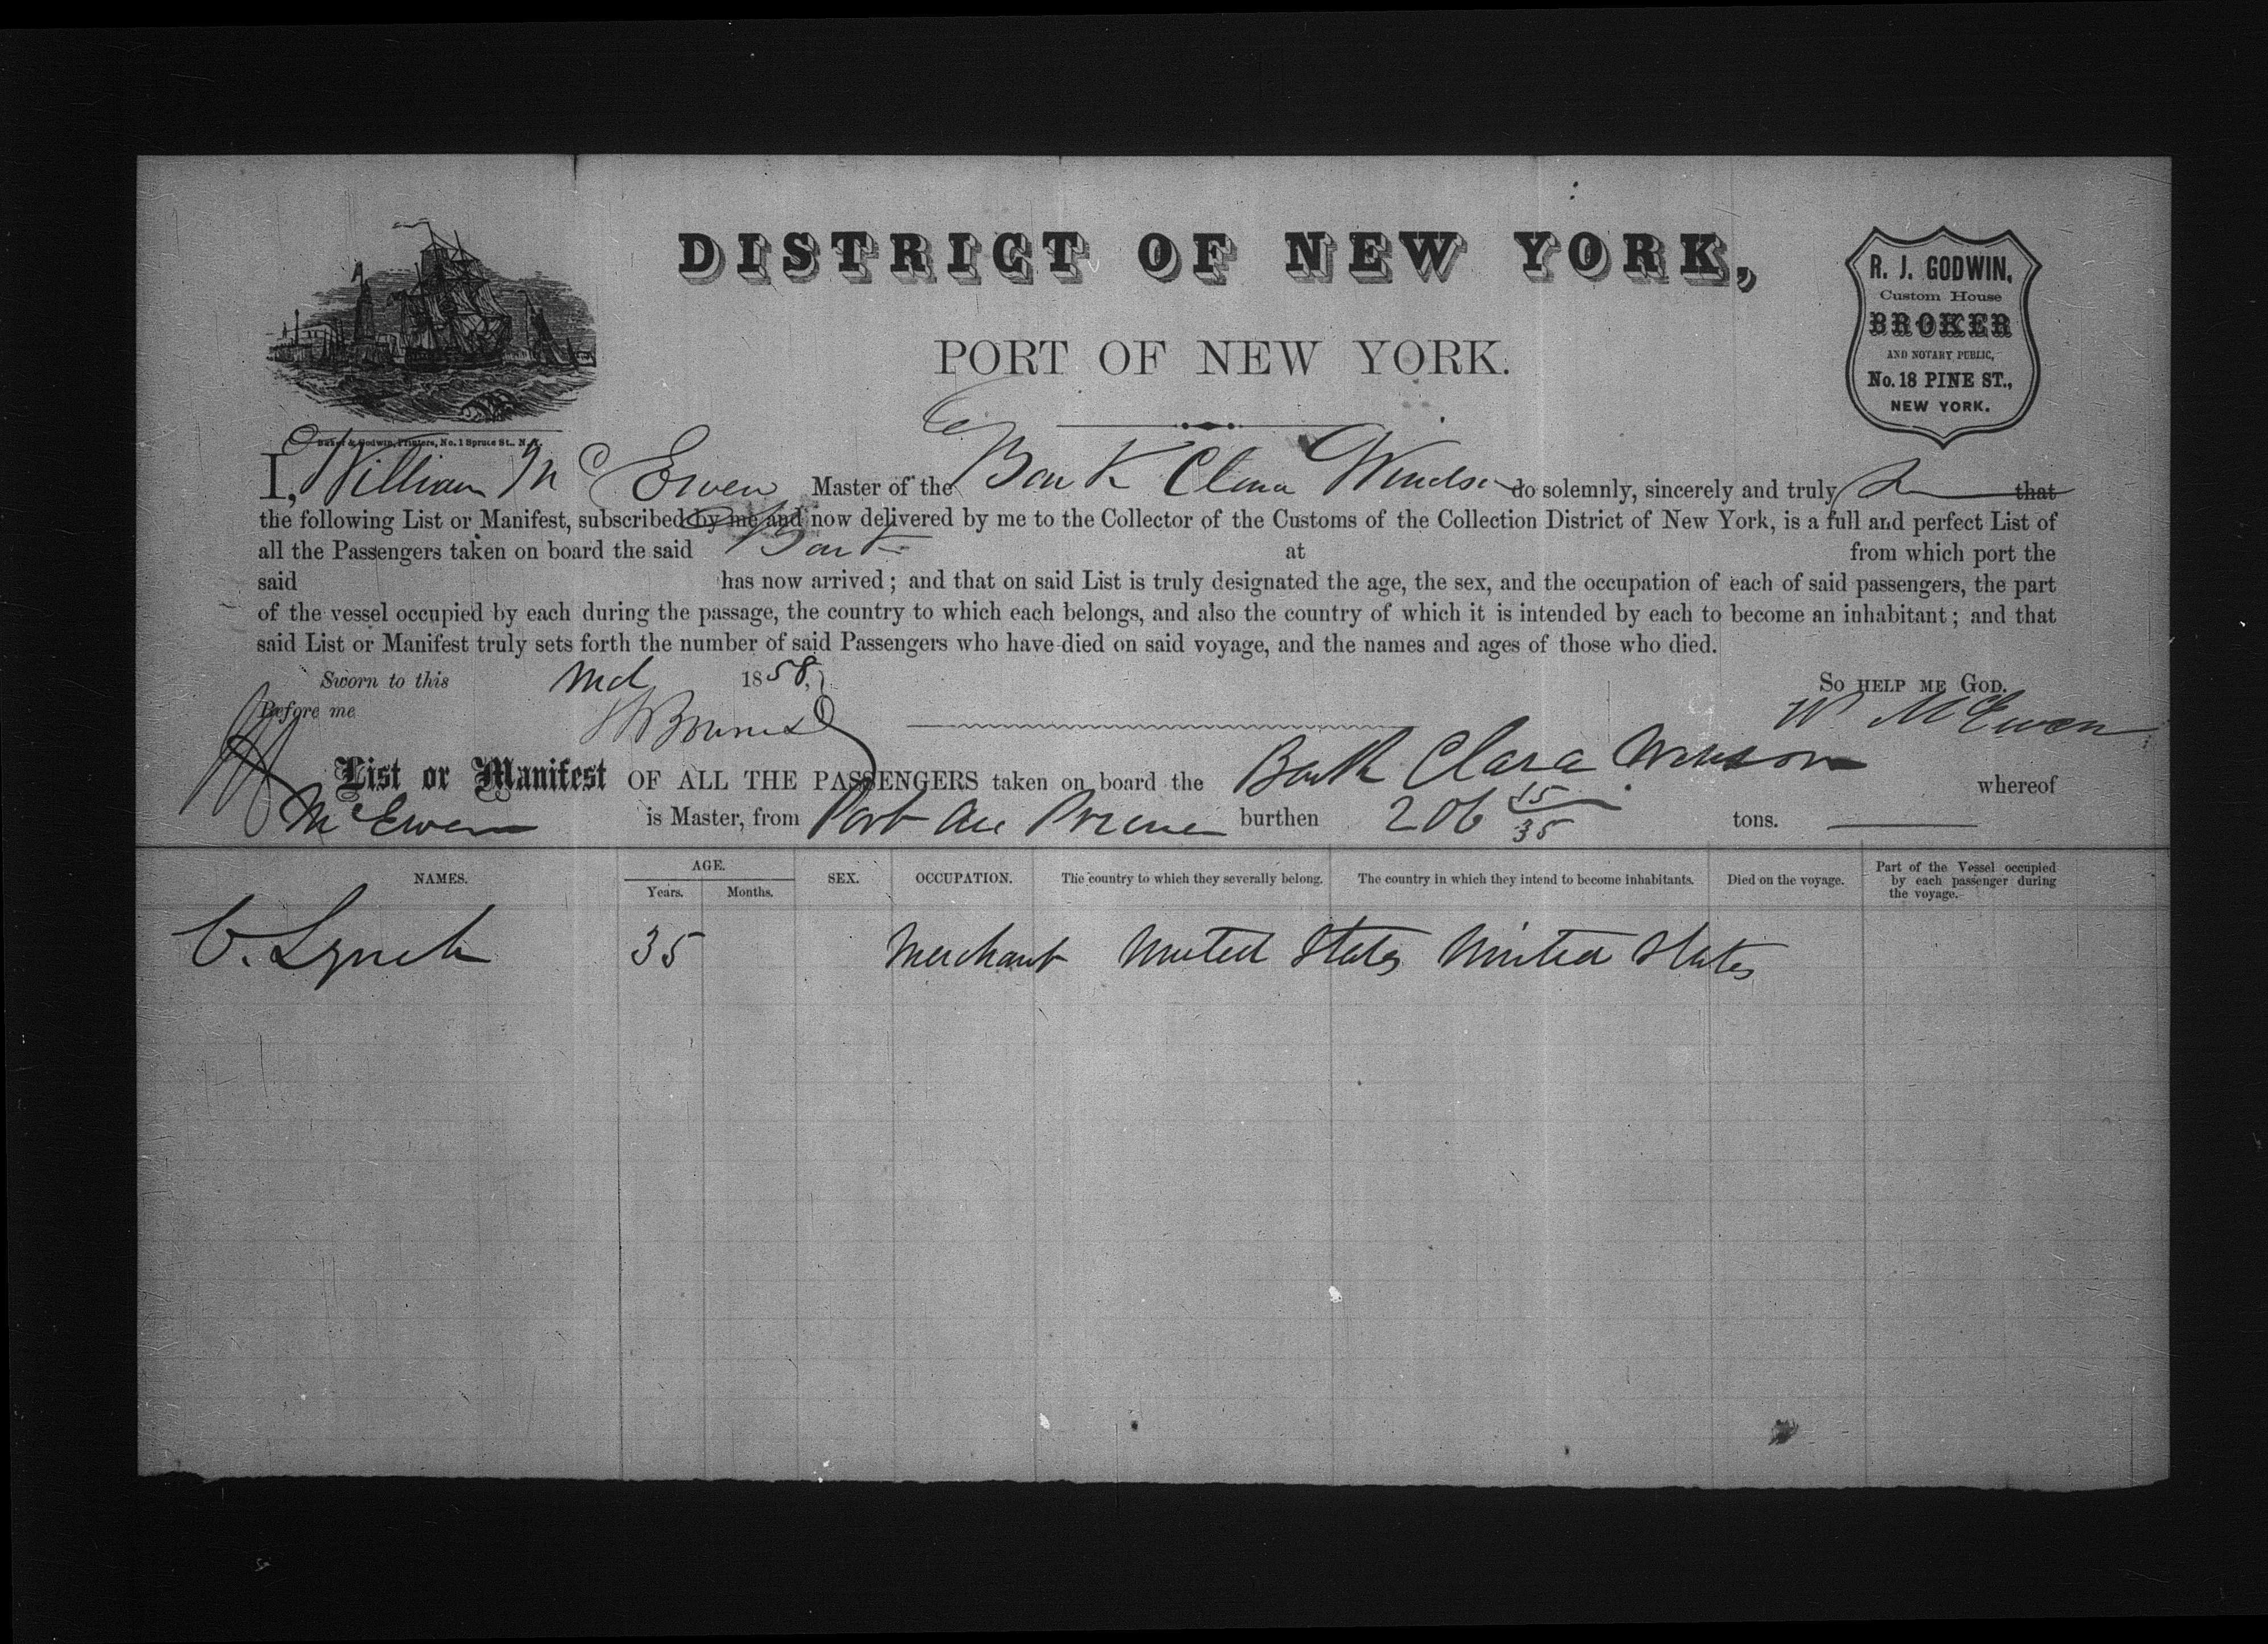 DISTRICT OF NEW YORK,
PORT OF NEW YORK.
R. J. GODWIN,
Custom House
BROKER
AND NOTARY PUBLIC,
No. 18 PINE ST.,
NEW YORK.
Baker & Godwin, Printers, No. 1 Spruce St., N.Y.
I, William McEwen Master of the Bark Clara do solemnly, sincerely and truly that
the following List or Manifest, subscribed by me and now delivered by me to the Collector of the Customs of the Collection District of New York, is a full and perfect List of
all the Passengers taken on board the said Bark at from which port the
said has now arrived; and that on said List is truly designated the age, the sex, and the occupation of each of said passengers, the part
of the vessel occupied by each during the passage, the country to which each belongs, and also the country of which it is intended by each to become an inhabitant; and that
said List or Manifest truly sets forth the number of said Passengers who have died on said voyage, and the names and ages of those who died.
Sworn to this 1858, So HELP ME GOD.
Before me W McEwen
List or Manifest OF ALL THE PASSENGERS taken on board the Bark Clara whereof
McEwen is Master, from Port au Prince burthen 206 tons.
NAMES. AGE. Years. Months. SEX. OCCUPATION. The country to which they severally belong. The country in which they intend to become inhabitants. Died on the voyage. Part of the Vessel occupied by each passenger during the voyage.
C. Lynch 35 Merchant United States United States